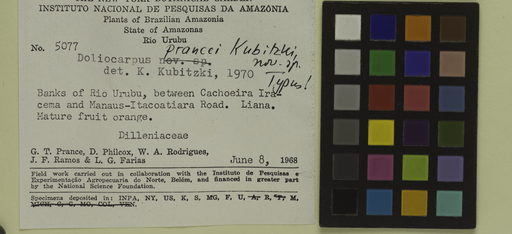 THE NEW YORK BOTANICAL GARDEN
INSTITUTO NACIONAL DE PESQUISAS DA AMAZÔNIA
Plants of Brazilian Amazonia
State of Amazonas
Rio Urubu
No. 5077
prancei Kubitzki,
nov. sp.
Doliocarpus nov. sp.
det. K. Kubitzki, 1970
Typus!
Banks of Rio Urubu, between Cachoeira Ira-
cema and Manaus-Itacoatiara Road. Liana.
Mature fruit orange.
Dilleniaceae
G. T. Prance, D. Philcox, W. A. Rodrigues,
J. F. Ramos & L. G. Farias June 8, 1968
Field work carried out in collaboration with the Instituto de Pesquisas e
Experimentação Agropecuaria do Norte, Belém, and financed in greater part
by the National Science Foundation.
Specimens deposited in: INPA, NY, US, K, S, MG, F, U, A, R, P, M,